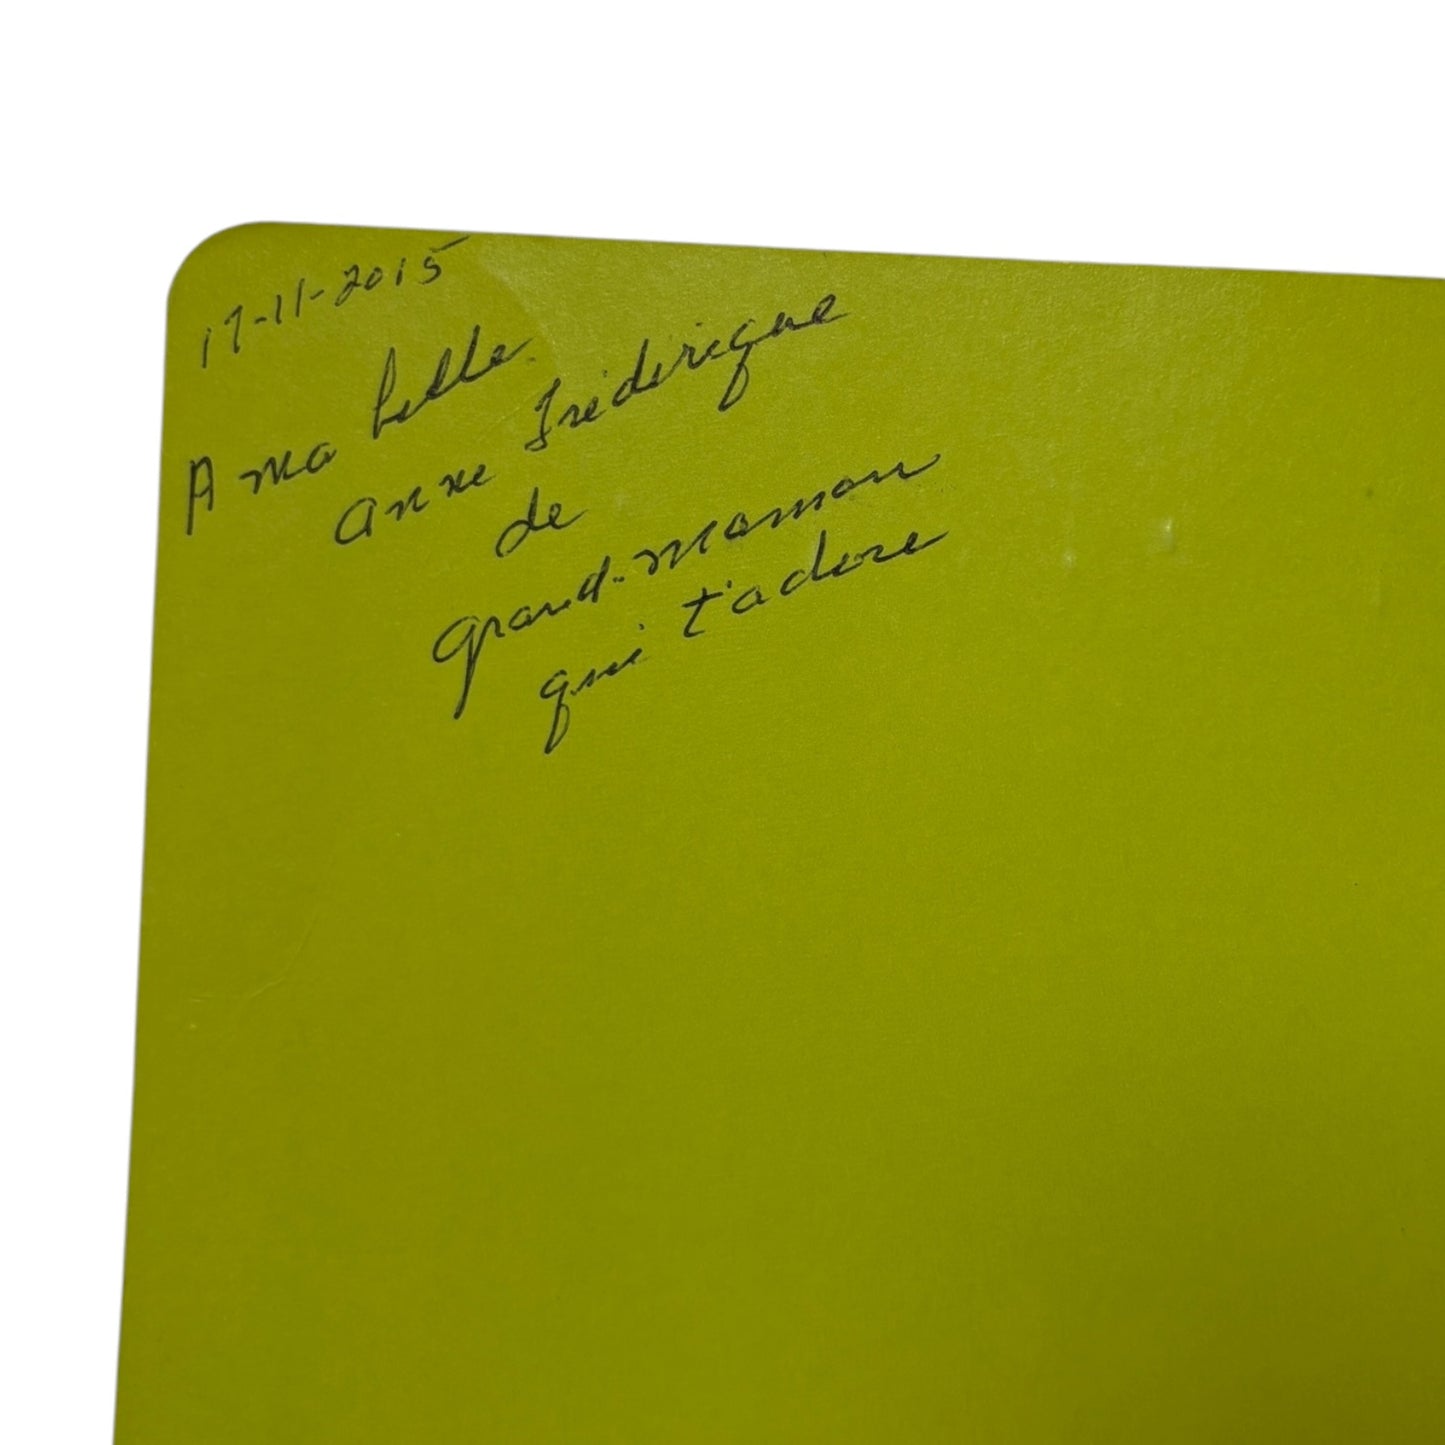 17-11-2015
A ma belle
Anne Frédérique
de
Grand-maman
qui t'adore